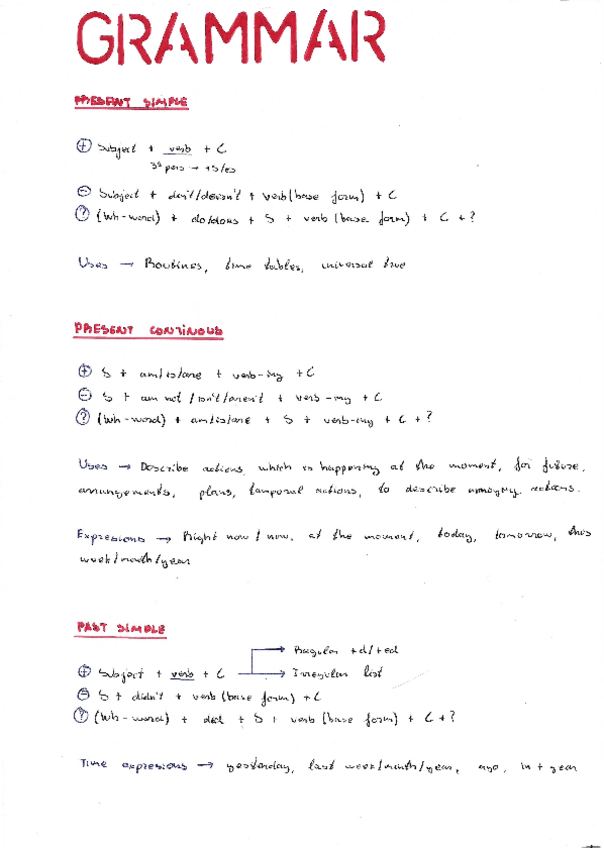 GRAMMAR
PRESENT SIMPLE
⊕ Subject + verb + C
3ª pers → +s/es
⊖ Subject + don't/doesn't + verb (base form) + C
? (Wh-word) + do/does + S + verb (base form) + C + ?
Uses → Routines, time tables, universal true
PRESENT CONTINOUS
⊕ S + am/is/are + verb-ing + C
⊖ S + am not / isn't/aren't + verb-ing + C
? (Wh-word) + am/is/are + S + verb-ing + C + ?
Uses → Describe actions, which is happening at the moment, for future,
arrangements, plans, temporal actions, to describe annoying actions.
Expresions → Right now / now, at the moment, today, tomorrow, this
week/month/year
PAST SIMPLE
→ Regular +d/+ed
⊕ Subject + verb + C → Irregular list
⊖ S + didn't + verb (base form) + C
? (Wh-word) + did + S + verb (base form) + C + ?
Time expresions → yesterday, last week/month/year, ago, in + year